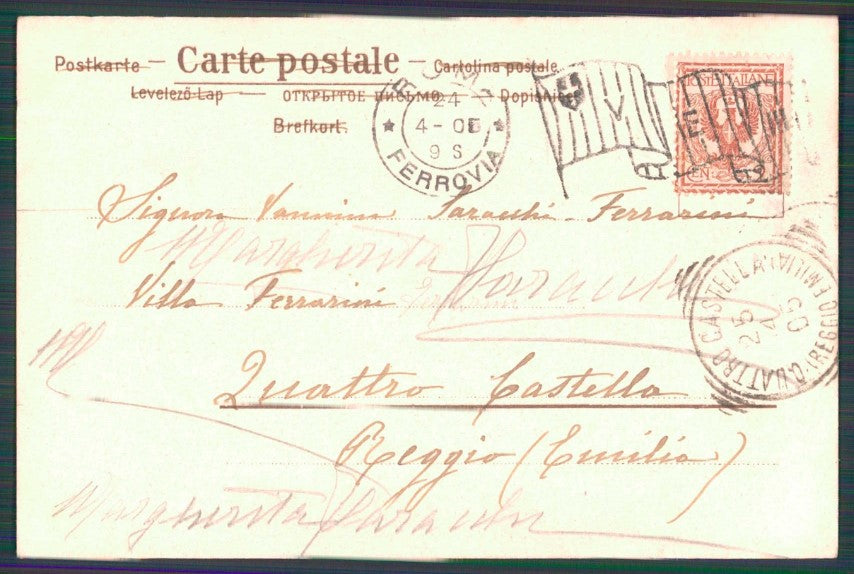 Postkarte – Carte postale – Cartolina postale
Levelező-Lap — ОТКРЫТОЕ ПИСЬМО — Dopisnice
Brefkort.
ROMA
24
4-05
9 S
★ FERROVIA ★
POSTE ITALIANE
CENT. 2
Signora Vannina Saracchi-Ferrarini
Margherita
Villa Ferrarini
Quattro Castella
Reggio (Emilia)
Margherita
QUATTRO CASTELLA (REGGIO EMILIA)
25
4
05